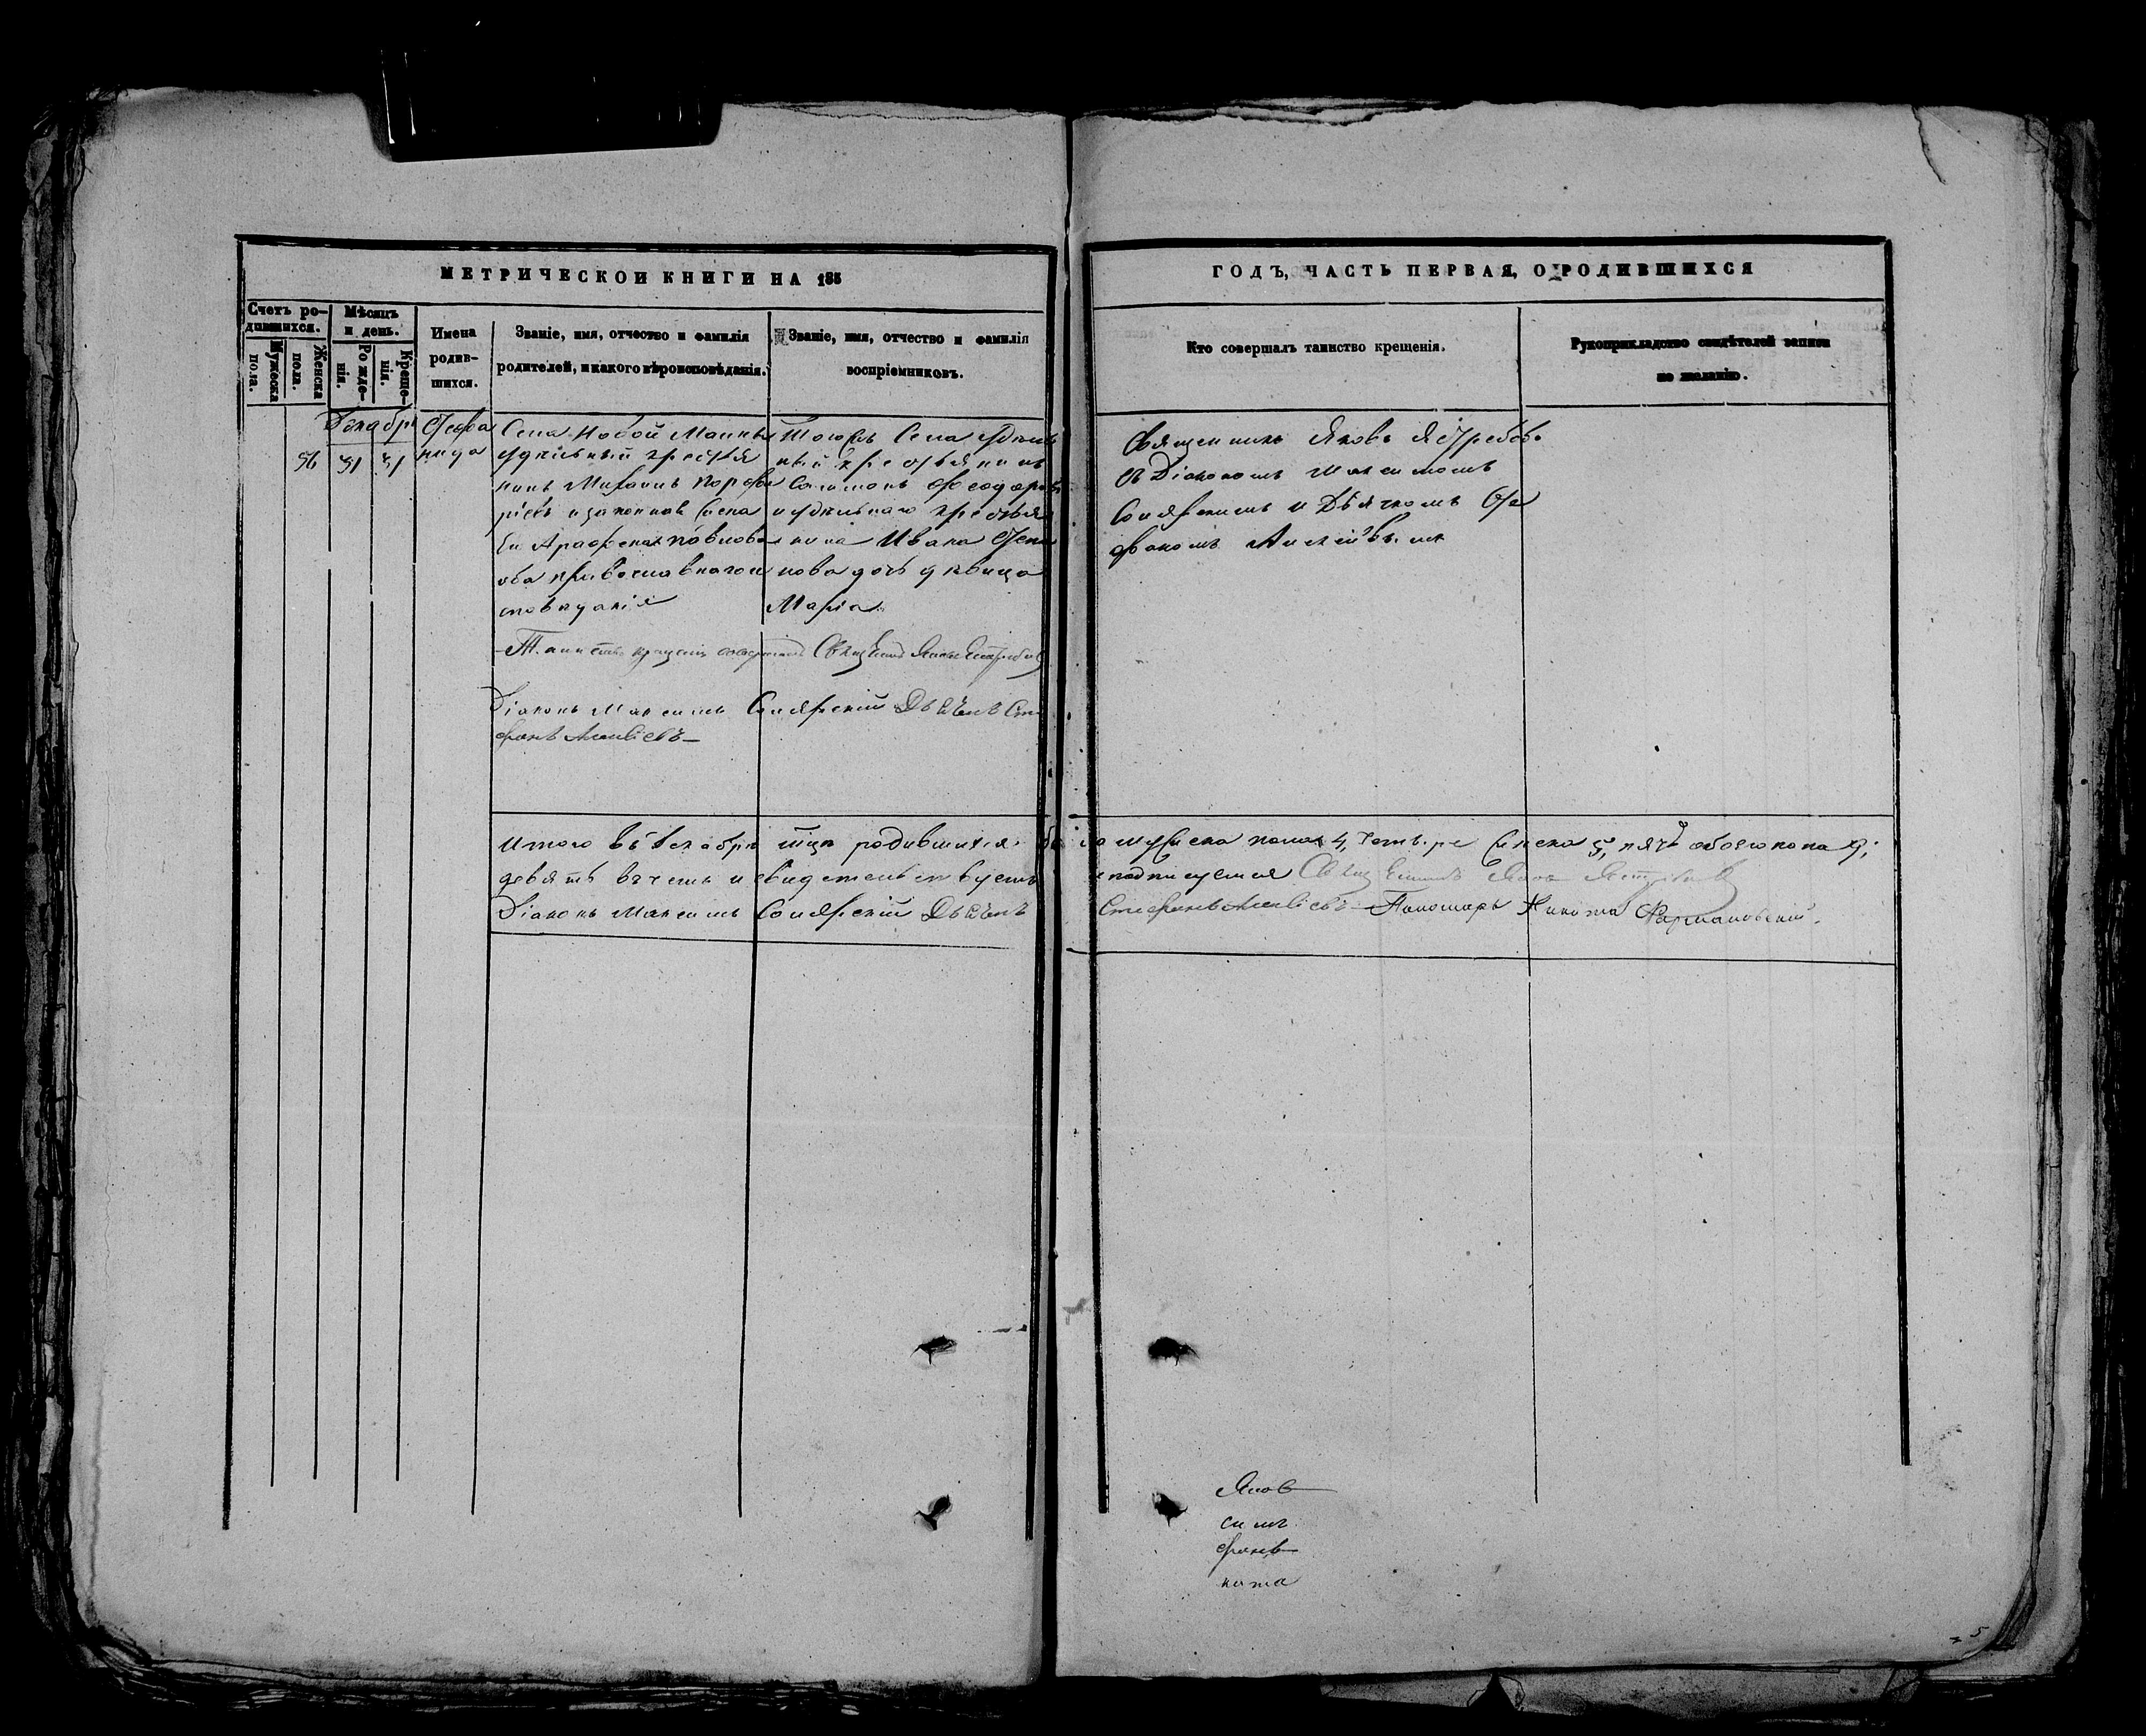 МЕТРИЧЕСКОЙ КНИГИ НА 185
ГОДЪ, ЧАСТЬ ПЕРВАЯ, О РОДИВШИХСЯ
Счетъ ро-
дившихся.
Мужеска
пола.
Женска
пола.
Мѣсяцъ
и день.
Рожде-
нія.
Креще-
нія.
Имена
родив-
шихся.
Званіе, имя, отчество и фамилія
родителей, и какого вѣроисповѣданія.
Званіе, имя, отчество и фамилія
воспріемниковъ.
Кто совершалъ таинство крещенія.
Рукоприкладство свидѣтелей записи
по желанію.
Декабрь
56 31 31
Стефа
нида
Села Новой Маины
удѣльный крестья
нинъ Михаилъ
и законная жена
его православнаго и
сповѣданія
Тогожъ Села удѣль
ный крестьянинъ
и удѣльнаго крестья
нина Ивана Степа
нова дочь дѣвица
Марія
Священникъ Яковъ Ястребовъ
съ Діакономъ Максимомъ
и Дьячкомъ Сте
фаномъ
Таинство крещенія совершалъ Священникъ Яковъ Ястребовъ
Діаконъ Максимъ Дьячекъ Сте
фанъ
Итого въ Декабрѣ мцѣ родившихся бы
ло мужеска пола 4, четыре женска 5, пять обоего пола 9,
девять въ чемъ и свидетельствуемъ
и подписуемся Священникъ Яковъ Ястребовъ
Діаконъ Максимъ Дьячекъ
Стефанъ Пономарь Никита
Яков
симъ
фанъ
кита
5